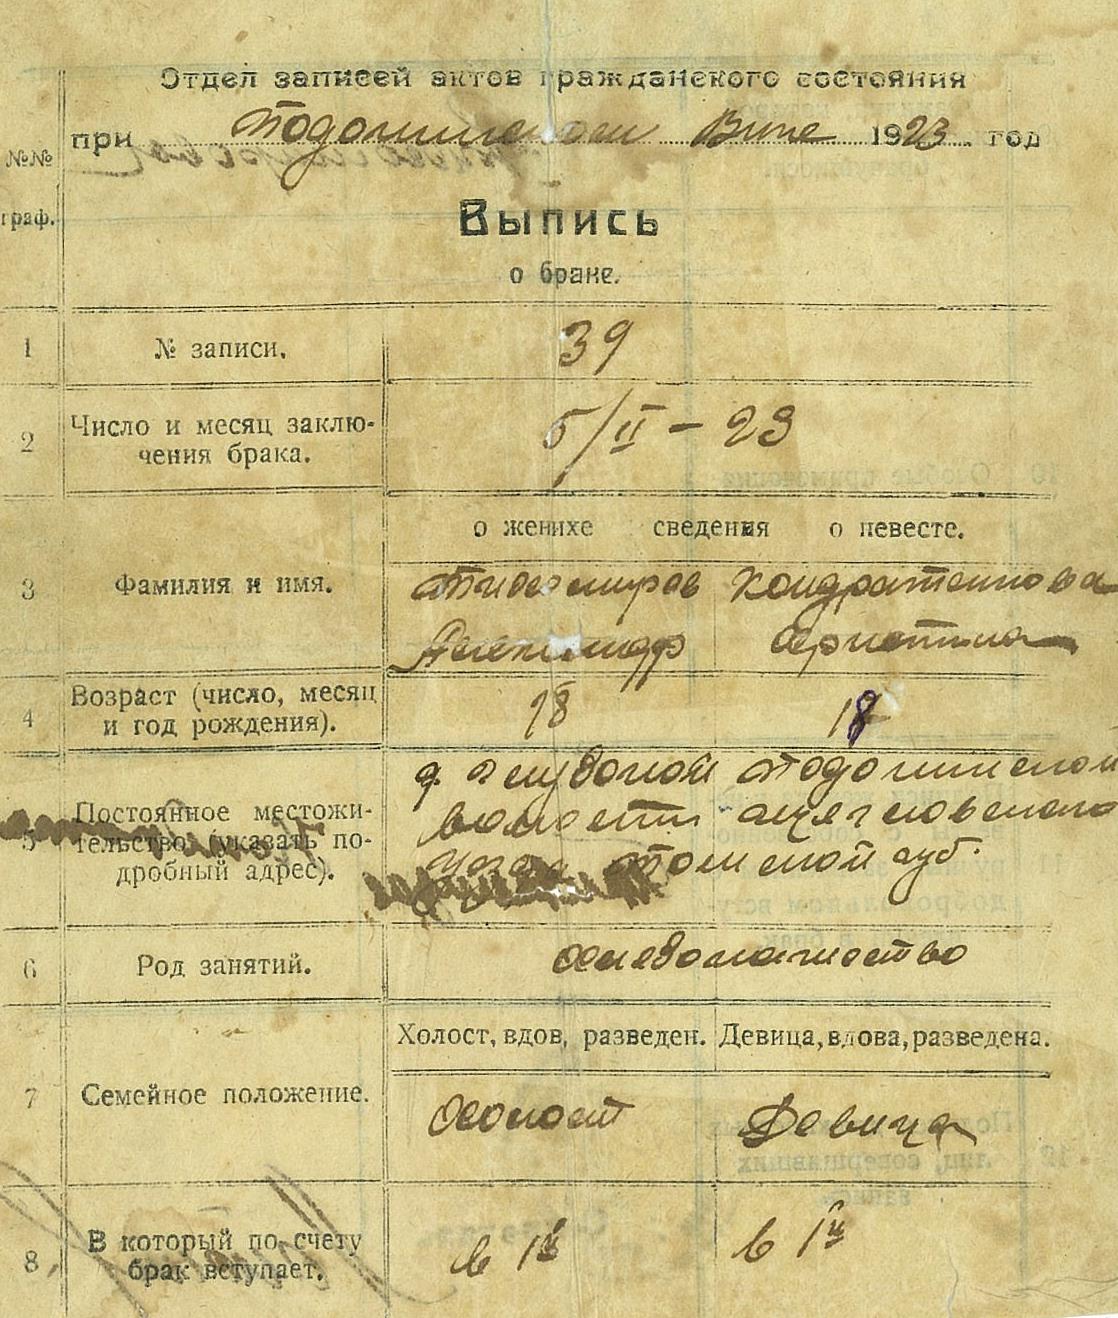 Отдел записей актов гражданского состояния
при Подонинском Вике 1923 год
№№ граф.
Выпись
о браке.
1 № записи. 39
2 Число и месяц заклю-
чения брака. 5/II – 23
о женихе сведения о невесте.
3 Фамилия и имя. Тихомиров Кондратенкова
Александр
4 Возраст (число, месяц
и год рождения). 18 18
д. Подонинской
5 Постоянное местожи-
тельство (указать по-
дробный адрес). волости Щегловского
уезда Томской губ.
6 Род занятий. Хлебопашество
Холост, вдов, разведен. Девица, вдова, разведена.
7 Семейное положение. Холост Девица
8 В который по счету
брак вступает. в 1й в 1й